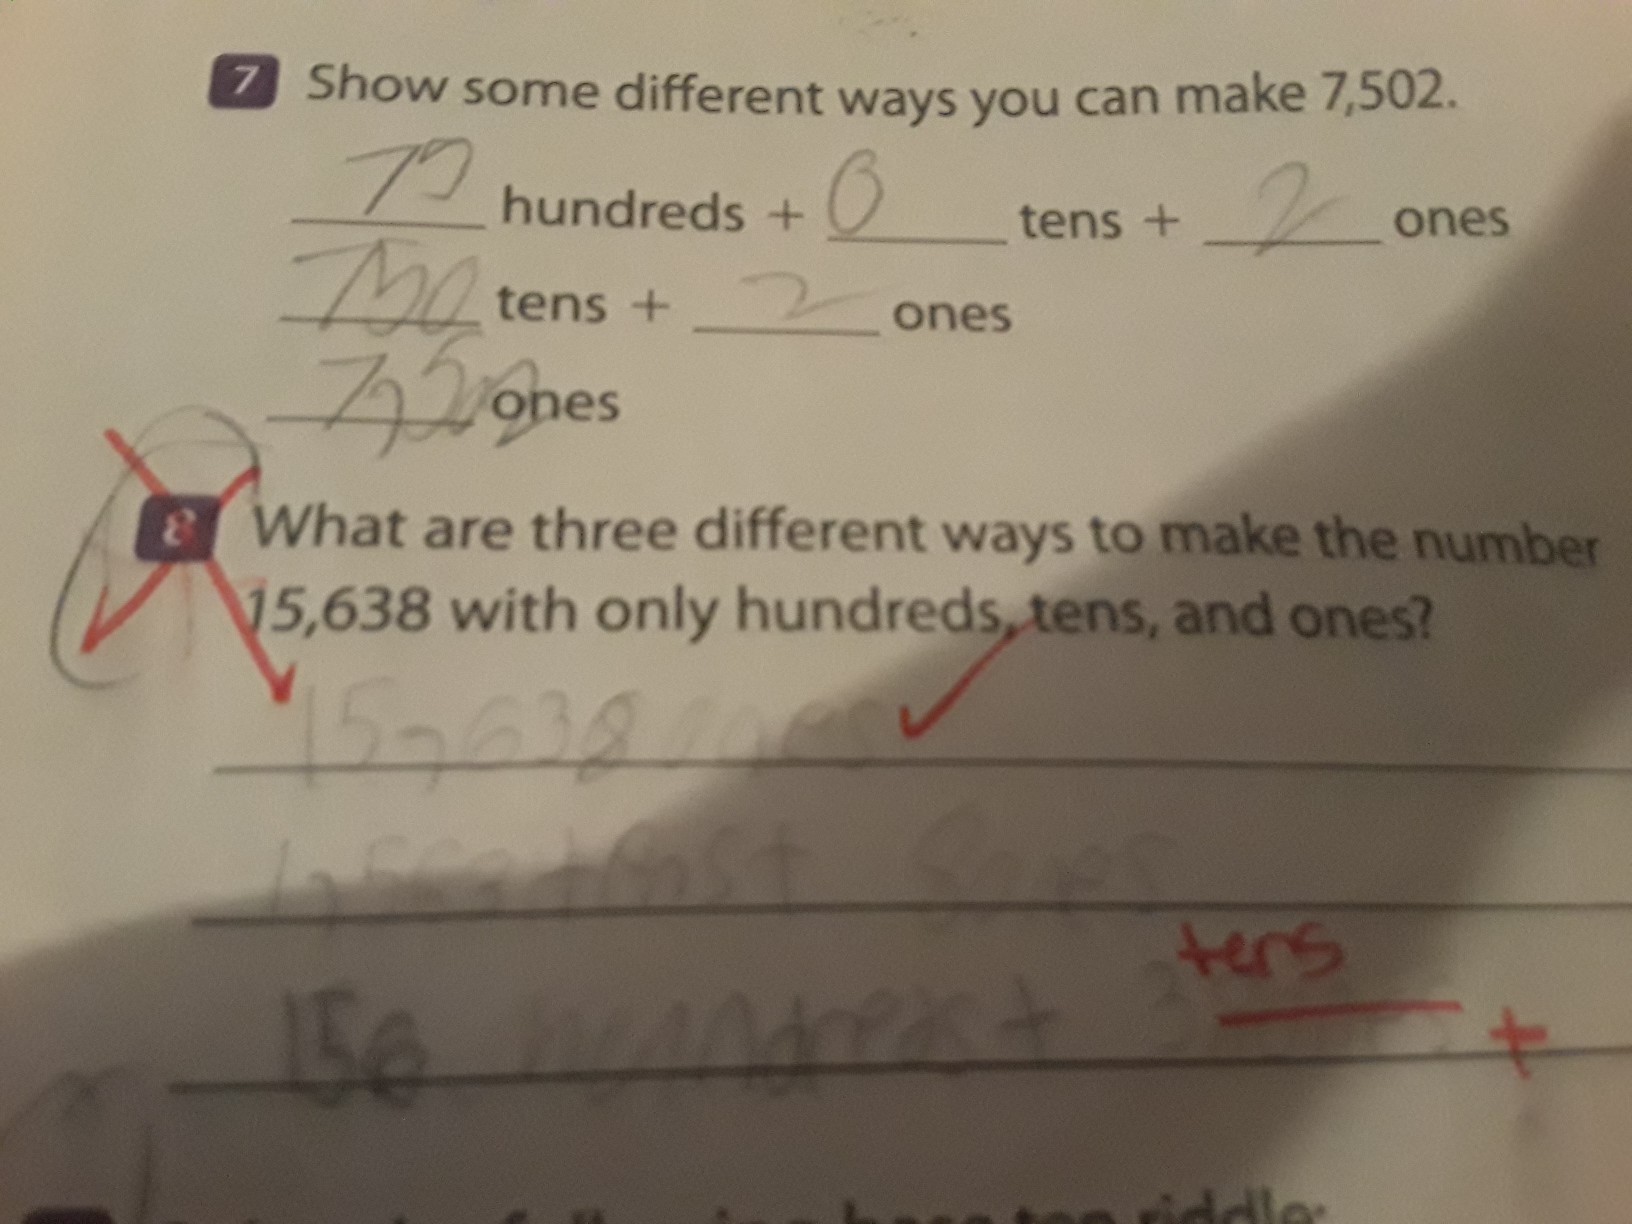 7 Show some different ways you can make 7,502.
75 hundreds + 0 tens + 2 ones
750 tens + 2 ones
7,502 ones
8 What are three different ways to make the number
15,638 with only hundreds, tens, and ones?
15,638 ones
8 ones
tens
156 hundreds + 3 +
base ten riddle: